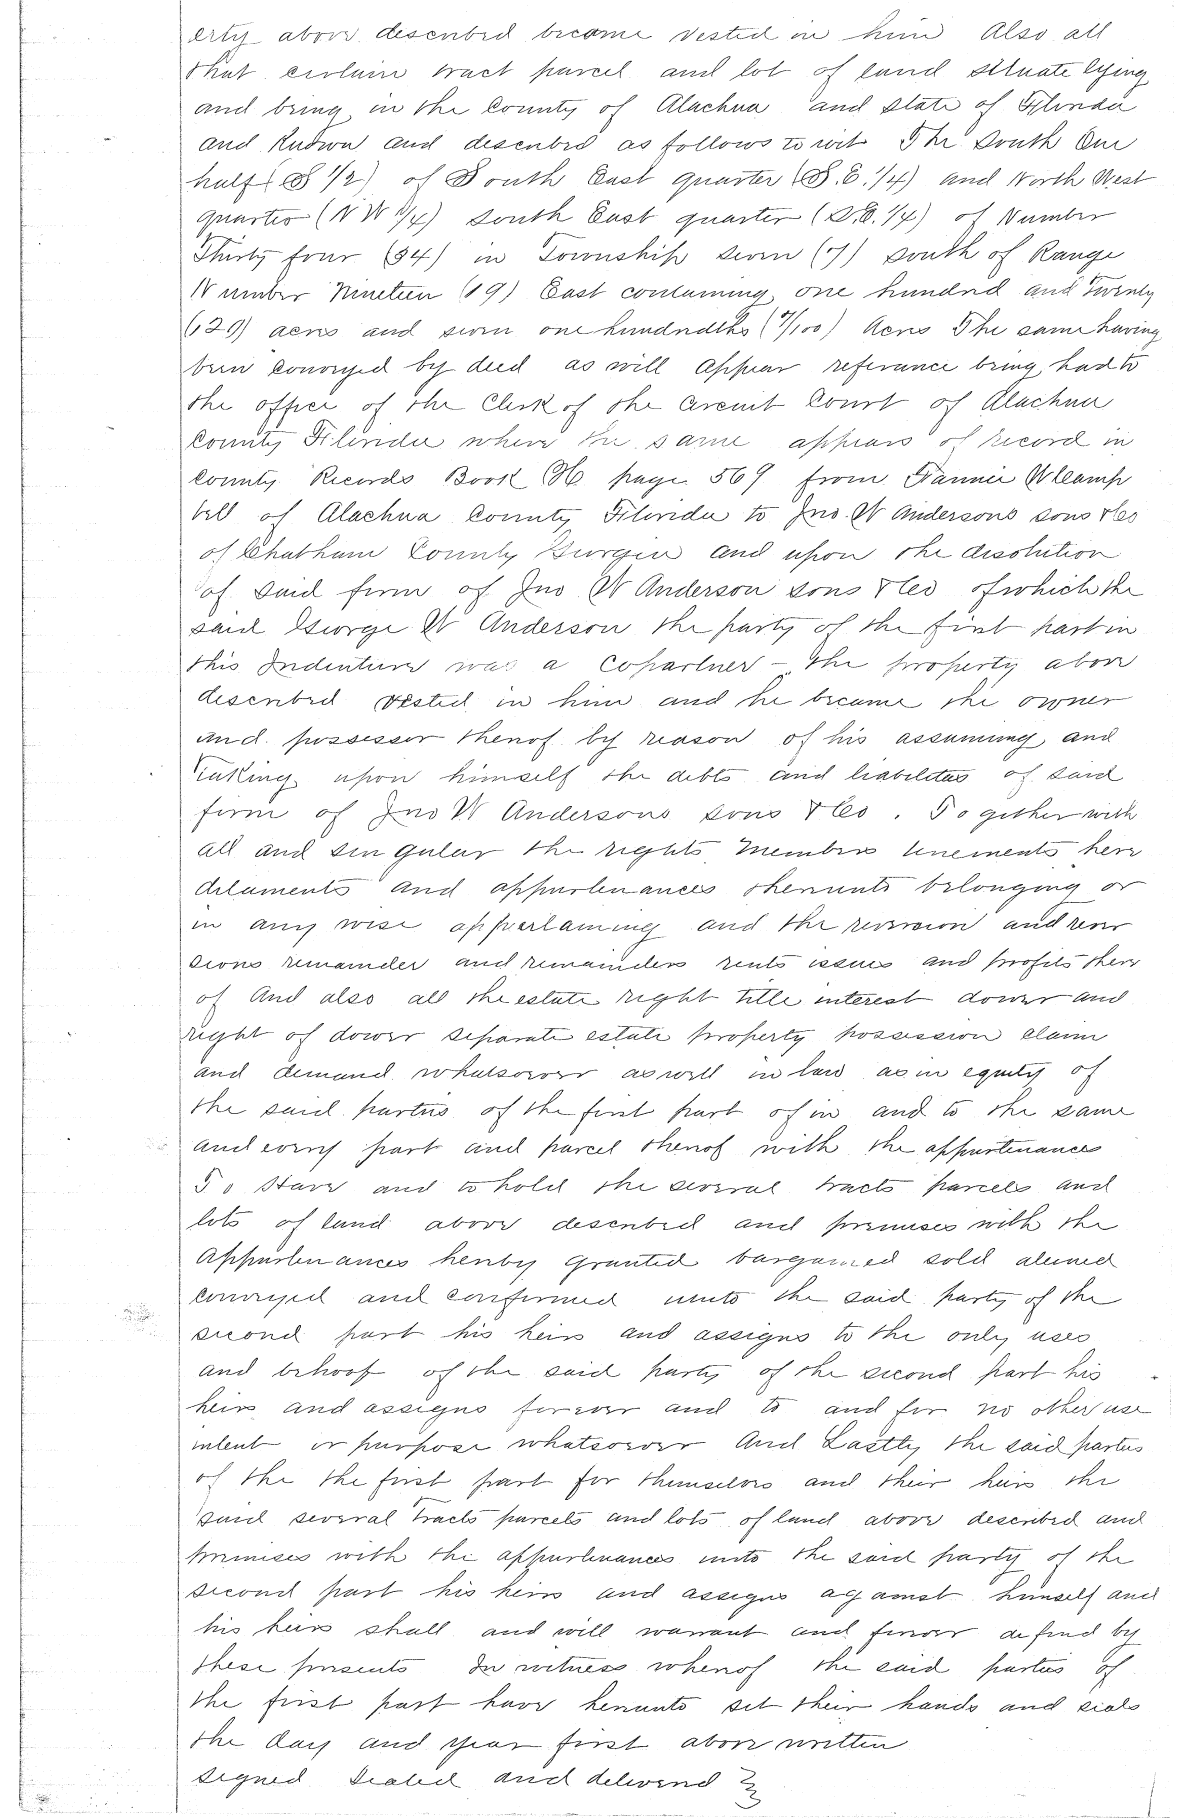 erty above described became vested in him Also all
that certain tract parcel and lot of land situate lying
and being in the County of Alachua and State of Florida
and Known and described as follows to wit The South One
half (S 1/2) of South East quarter (S.E. 1/4) and North West
quarter (N W 1/4) South East quarter (S.E. 1/4) of Number
Thirty four (34) in Township seven (7) South of Range
Number Nineteen (19) East containing one hundred and Twenty
(120) acres and seven one hundredths (7/100) Acres The same having
been Conveyed by deed as will appear referance being had to
the office of the Clerk of the Circuit Court of Alachua
County Florida where the same appears of record in
County Records Book H page 569 from Fannie W Camp
bell of Alachua County Florida to Jno. W Andersons sons & Co
of Chatham County Georgia and upon the disolution
of said firm of Jno W Anderson sons & Co of which the
said George W Anderson the party of the first part in
this Indenture was a Copartner - the property above
described vested in him and he became the owner
and possessor thereof by reason of his assuming and
taking upon himself the debts and liabilities of said
firm of Jno W Andersons sons & Co. To gether with
all and sin gular the rights members tenements here
ditaments and appurtenances thereunto belonging or
in any wise appertaining and the reversion and rever
sions remainder and remainders rents issues and profits there
of And also all the estate right title interest dower and
right of dower separate estate property possession claim
and demand whatsoever as well in law as in equity of
the said parties of the first part of in and to the same
and every part and parcel thereof with the appurtenances
To Have and to hold the several tracts parcels and
lots of land above described and premises with the
Appurtenances hereby granted bargained sold aliened
conveyed and confirmed unto the said party of the
second part his heirs and assigns to the only uses
and behoof of the said party of the second part his
heirs and assigns forever and to and for no other use
intent or purpose whatsoever And Lastly the said parties
of the the first part for themselves and their heirs the
said several tracts parcels and lots of land above described and
premises with the appurtenances unto the said party of the
second part his heirs and assigns against himself and
his heirs shall and will warrant and forever defend by
these presents In witness whereof the said parties of
the first part have hereunto set their hands and seals
the day and year first above written
signed Sealed and delivered